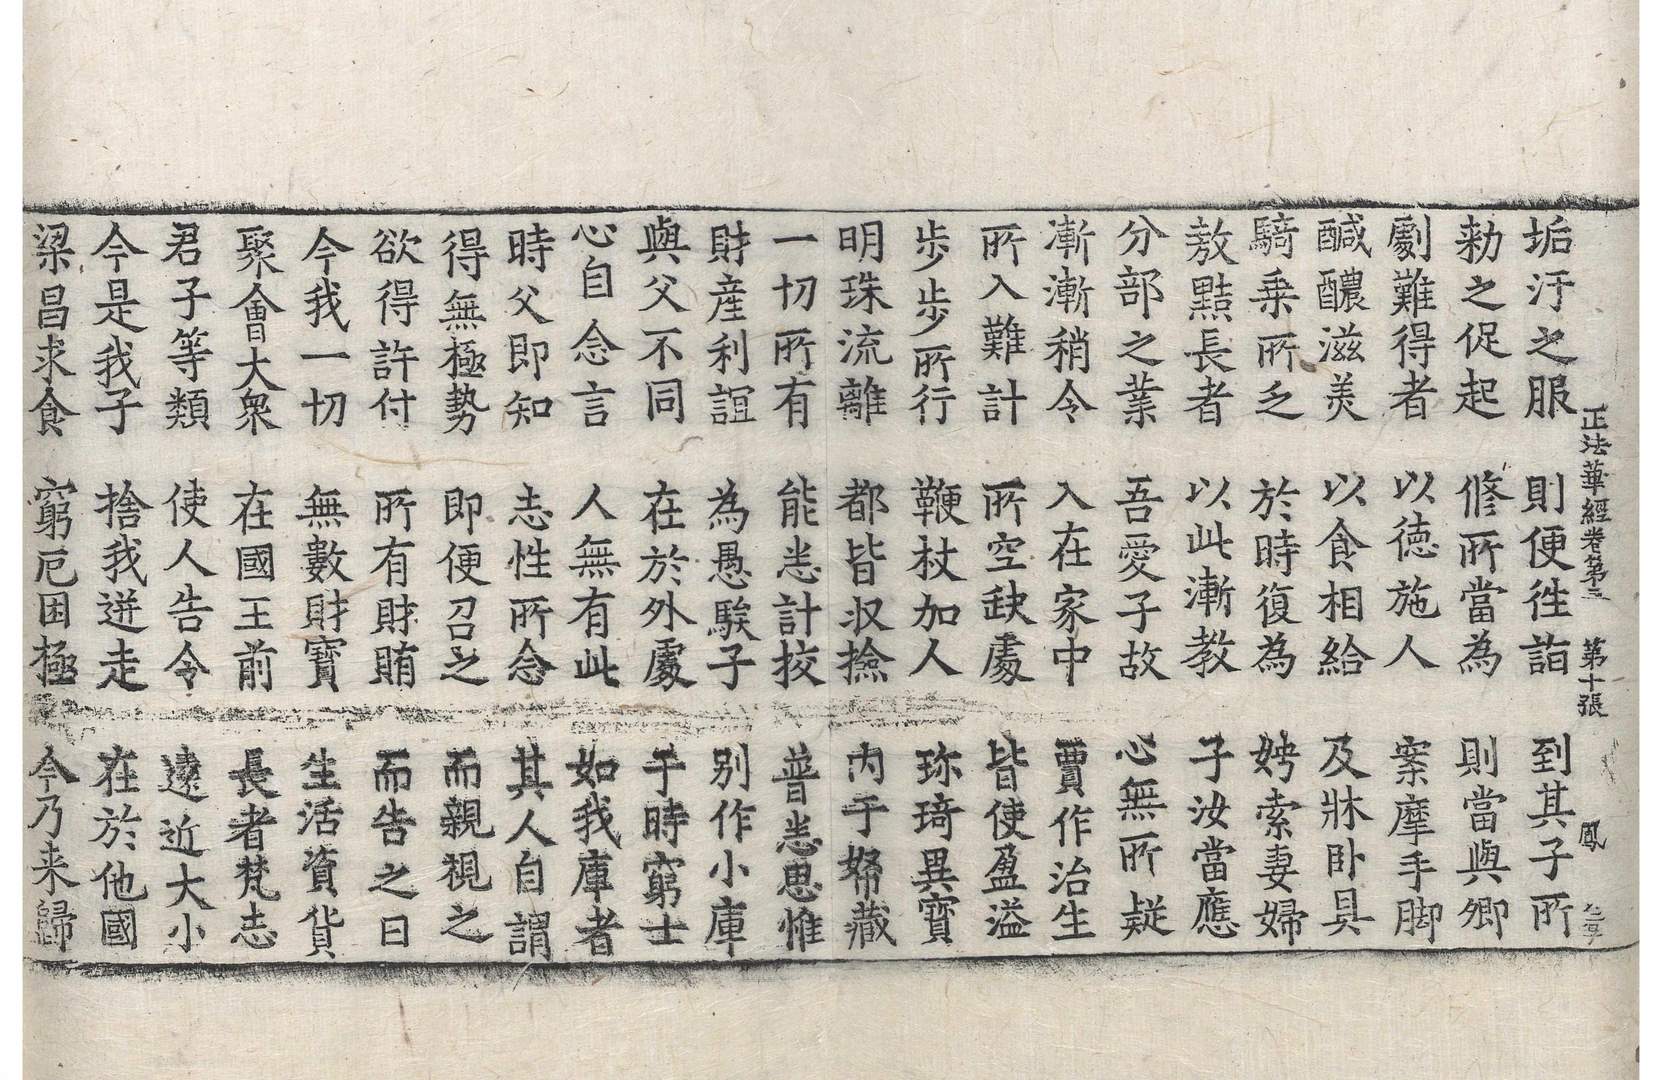 正法華經卷第三 第十張 鳳
垢汙之服 則便往詣 到其子所
勑之促起 修所當為 則當與卿
劇難得者 以德施人 案摩手脚
醎醲滋美 以食相給 及牀卧具
騎乗所乏 於時復為 娉索妻婦
敖黠長者 以此漸教 子汝當應
分部之業 吾愛子故 心無所疑
漸漸稍令 入在家中 賈作治生
所入難計 所空缺處 皆使盈溢
步步所行 鞭杖加人 珎琦異寶
明珠流離 都皆収撿 内于帑藏
一切所有 能悉計挍 普悉思惟
財産利誼 為愚騃子 別作小庫
與父不同 在於外處 于時窮士
心自念言 人無有此 如我庫者
時父即知 志性所念 其人自謂
得無極勢 即便召之 而親視之
欲得許付 所有財賄 而告之曰
今我一切 無數財寶 生活資貨
聚會大衆 在國王前 長者梵志
君子等類 使人告令 遠近大小
今是我子 捨我迸走 在於他國
梁昌求食 窮厄困極 今乃来歸